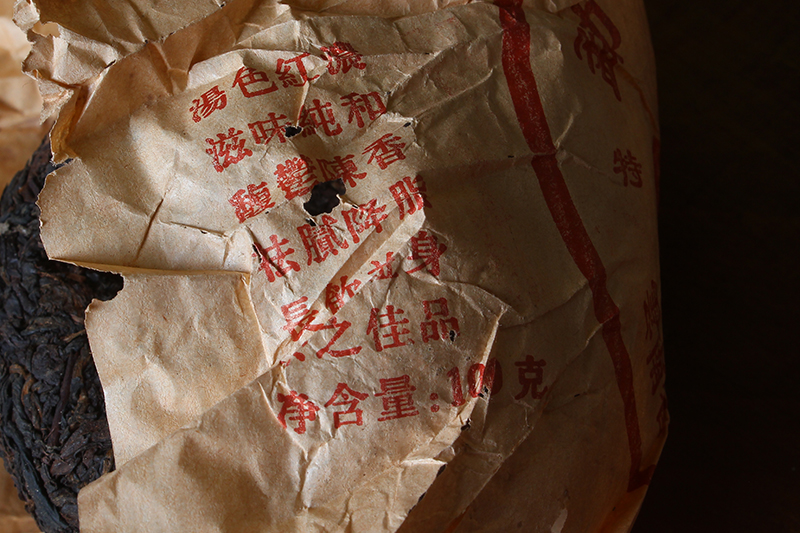 湯色紅濃
滋味純和
馥鬱陳香
祛膩降脂
長飲 身
之佳品
净含量:100克
特